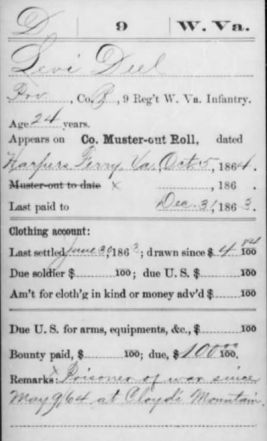 D 9 W. Va.
Levi Deel
Pvt, Co. B, 9 Reg't W. Va. Infantry.
Age 24 years.
Appears on Co. Muster-out Roll, dated
Harpers Ferry, Va. Oct 5, 1864.
Muster-out to date X, 186 .
Last paid to Dec. 31, 1863.
Clothing account:
Last settled June 30, 186 ; drawn since $ 4 84/100
Due soldier $ 100; due U. S. $ 100
Am't for cloth'g in kind or money adv'd $ 100
Due U. S. for arms, equipments, &c., $ 100
Bounty paid, $ 100; due, $ 100 00/100
Remarks: X Prisoner of war since
May 9, 64 at Cloyds Mountain